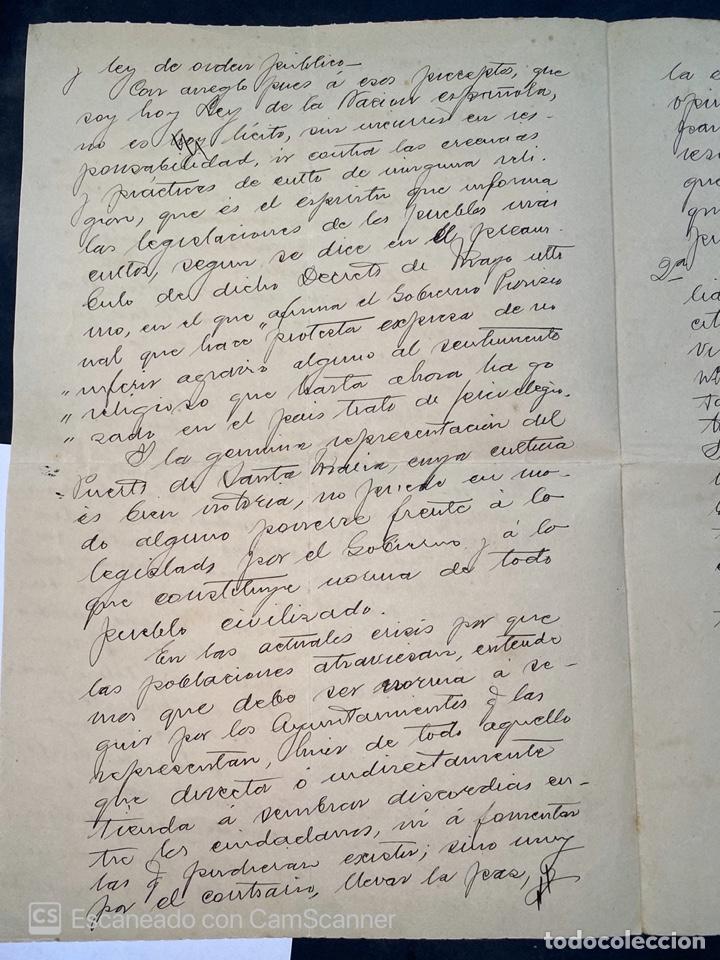 y ley de orden público—
Con arreglo pues á esos preceptos, que
soy hoy Ley de la Nacion española,
no es lícito, sin incurrir en res-
ponsabilidad, ir contra las creencias
y prácticas de culto de ninguna reli-
gion, que és el espiritu que informa
las legislaciones de los pueblos más
cultos, segun se dice en el préam-
bulo de dicho Decreto de Mayo últi
mo, en el que afirma el Gobierno Provisio
nal que hace "protesta expresa de no
"inferir agravio alguno al sentimiento
"religioso que hasta ahora ha go
"zado en el pais trato de privilegio.
A la genuina representación del
Puerto de Santa Maria, cuya cultura
és bien notoria, no puede en mo-
do alguno ponerse frente á lo
legislado por el Gobierno y á lo
que constituye norma de todo
pueblo civilizado.
En las actuales crisis por que
las poblaciones atraviesan, entende
mos que debe ser norma á se-
guir por los Ayuntamientos q̃ las
representan, huir de todo aquello
que directa ó indirectamente
tienda á sembrar discordias en-
tre los ciudadanos, ni á fomentar
las q̃ pudieran existir; sino muy
por el contrario, llevar la paz,
la e
opin
par
res
que
qu
pu
2ª
lid
cit
vi
CS Escaneado con CamScanner
todocoleccion